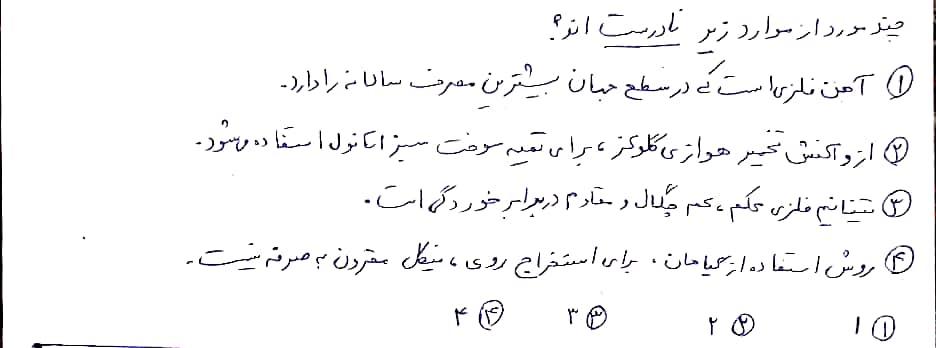 چند مورد از موارد زیر نادرست اند؟
① آهن فلزی است که در سطح جهان بیشترین مصرف سالانه را دارد.
② از واکنش تخمیر هوازی گلوکز، برای تهیه سوخت سبز اتانول استفاده میشود.
③ تیتانیم فلزی محکم، کم چگال و مقاوم در برابر خوردگی است.
④ روش استفاده از گیاهان، برای استخراج روی، نیکل مقرون به صرفه نیست.
① ۱ ② ۲ ③ ۳ ④ ۴